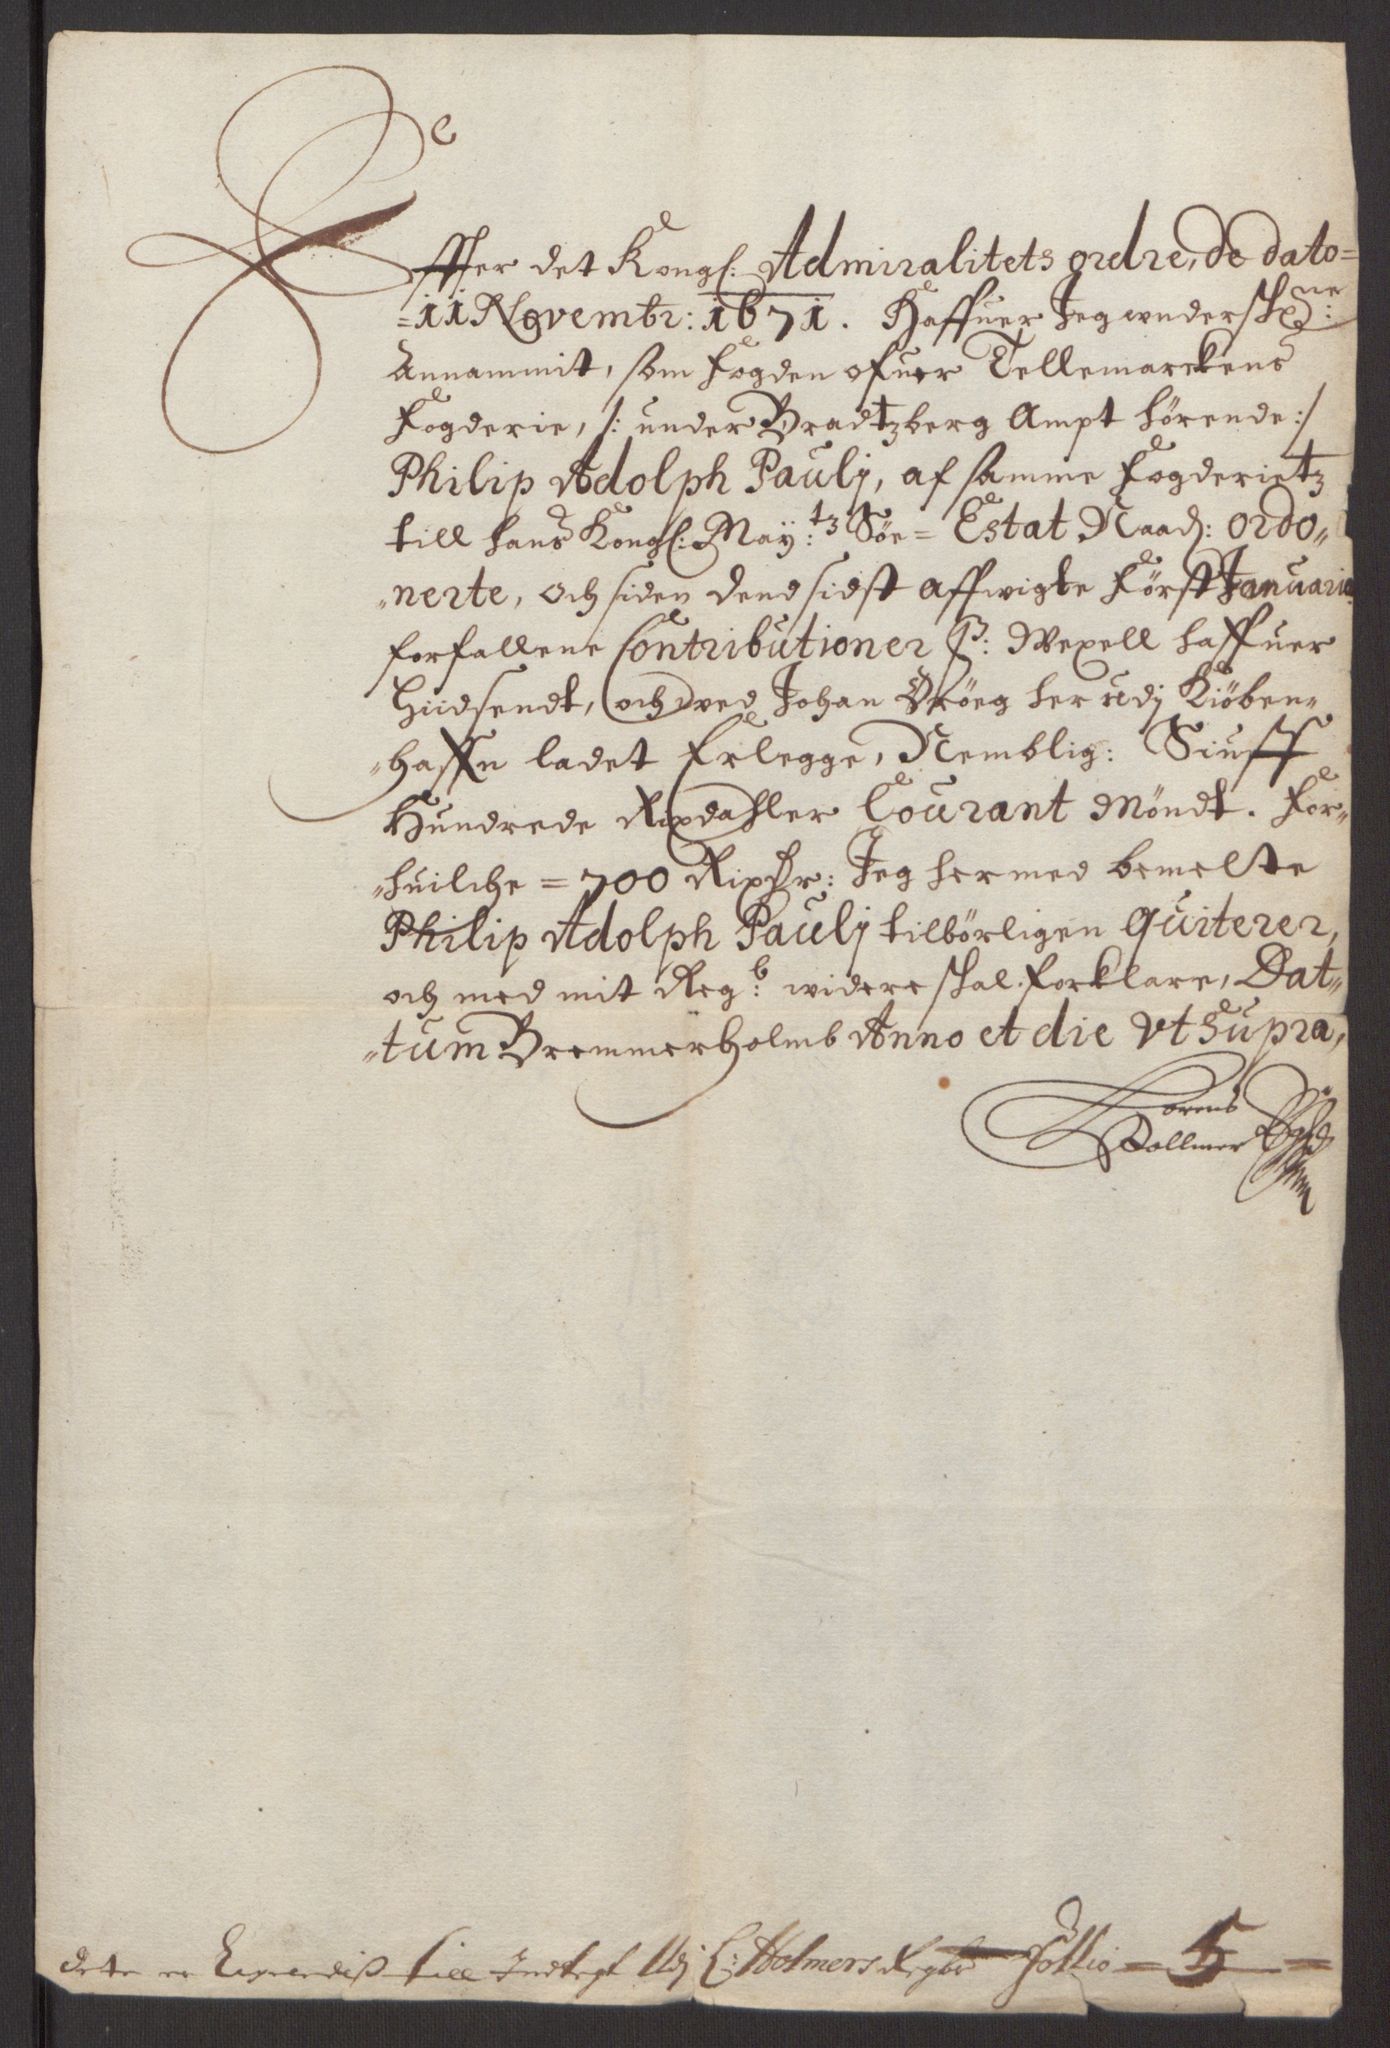 Effter det Kongl: Admiralitets ordre, de dato=
=11 Novembr: 1671. Haffuer Jeg underschne:
Annammit, som Fogden ofuer Tellemarckens
Fogderie, /: under Bradtzberg Ampt hörende :/
Philip Adolph Paulj, af samme Fogderietz
till hans Kongl: May:tz Söe= Estat Naad: ordo„
„nerte, och siden dend sidst affvigte Först Januarie
forfallene Contributioner P: Wexell haffuer
Hiidsendt, och ved Johan her udj Kiöben„
„haffn ladet Erlegge, Nemblig: Siuff
Hundrede Rixdahler Courant Möndt. For„
„huilche =700 Rixdr: Jeg hermed bemelte
Philip Adolph Paulj tilbörligen Quiterer,
och med mit Regb: widere skal forklare, Dat„
„tum Bremmerholmb Anno et die Vt Supra,
Lorens
Hollmer
dette er till Indtegt Udj L: Holmers Regbs Follio = 5 =